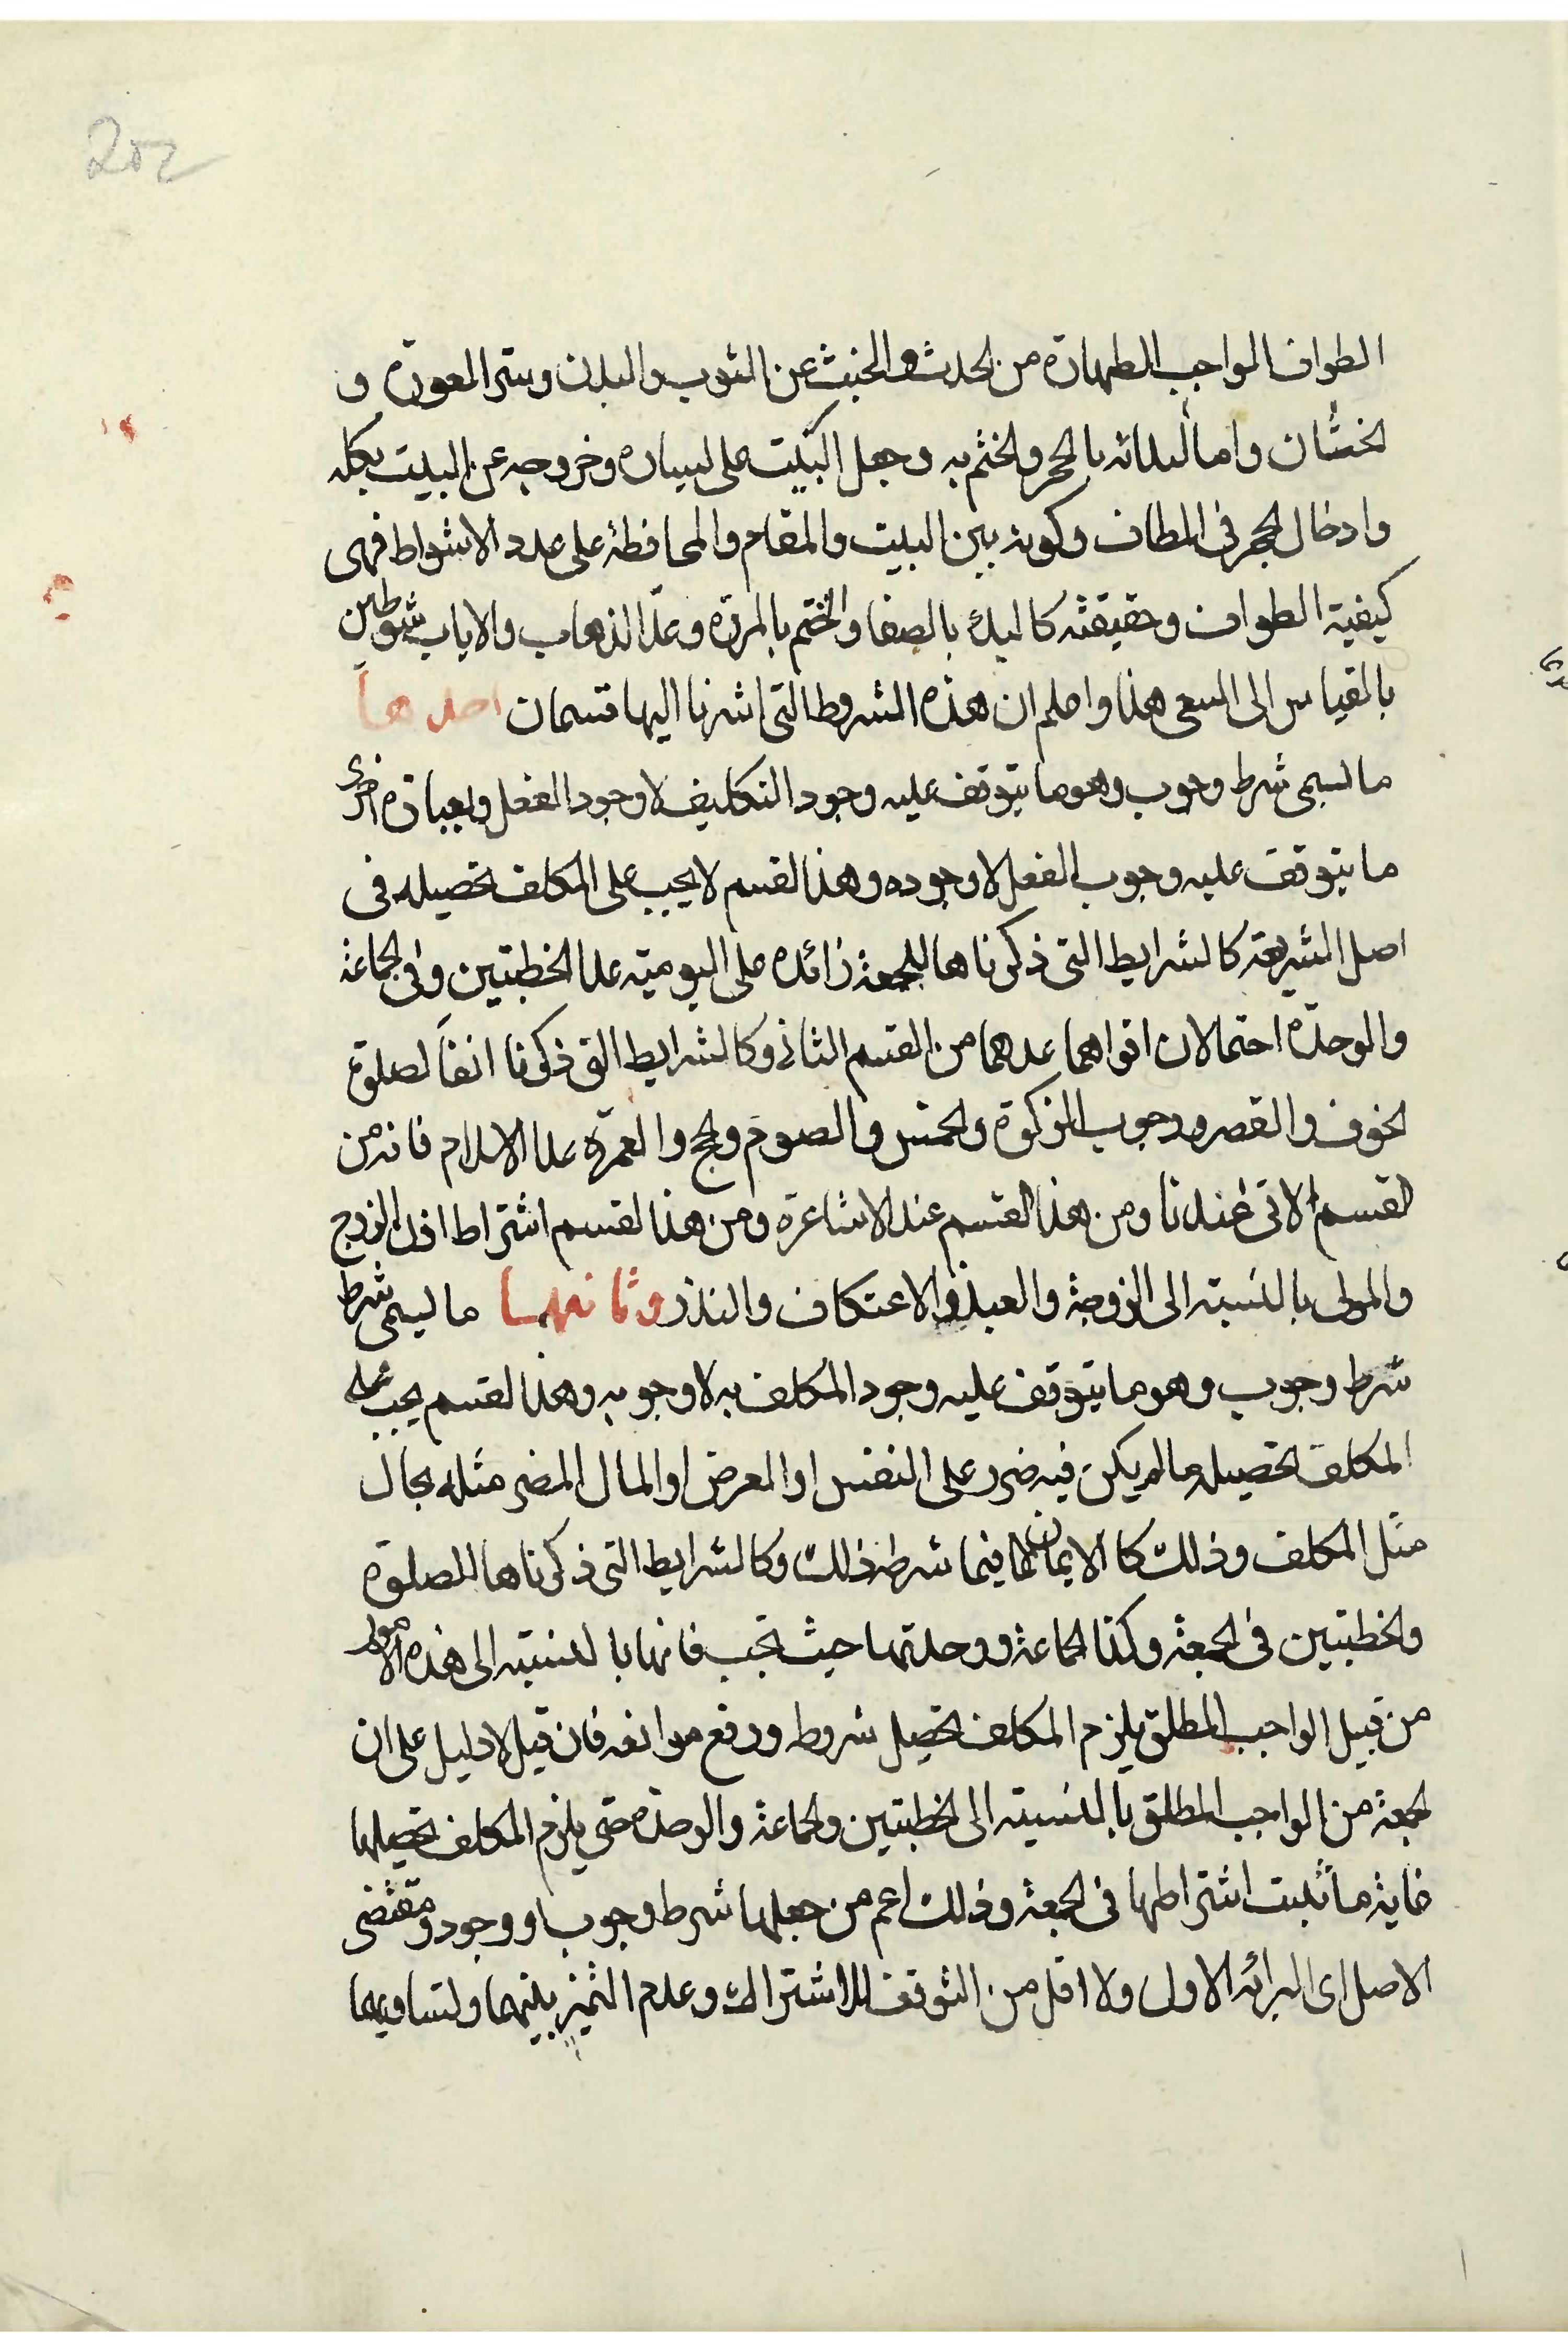 202
الطواف الواجب الطهارة من الحدث والخبث عن الثوب والبدن وستر العورة و
الختان واما البدائه بالحجر والختم به وجعل البيت على يساره وخروجه عن البيت بكله
وادخال الحجر فى المطاف وكونه بين البيت والمقام والمحافظة على عدد الاشواط فهى
كيفية الطواف وحقيقته كالبدئة بالصفا والختم بالمروة وعد الذهاب والاياب شوطين
بالقياس الى السعى هذا واعلم ان هذه الشروط التى اشرنا اليها قسمان احدهما
ما يسمى شرط وجوب وهو ما يتوقف عليه وجود التكليف لا وجود الفعل وبعبارة اخرى
ما يتوقف عليه وجوب الفعل لا وجوده وهذا القسم لا يجب على المكلف تحصيله فى
اصل الشريعة كالشرايط التى ذكرناها للجمعة زائده على اليومية عدا الخطبتين وفى الجماعة
والوحدة احتمالان اقواهما عدهما من القسم الثانى وكالشرايط التى ذكرنا انفا لصلوة
الخوف والقصر ووجوب الزكوة والخمس والصوم والحج والعمرة عدا الاسلام فانه من
القسم الاتى عندنا ومن هذا القسم عند الاشاعرة ومن هذا القسم اشتراط اذن الزوج
والمولى بالنسبة الى الزوجة والعبد فى الاعتكاف والنذر وثانيهما ما يسمى شرط
شرط وجوب وهو ما يتوقف عليه وجود المكلف به لا وجوبه وهذا القسم يجب على
المكلف تحصيله ما لم يكن فيه ضرر على النفس او العرض او المال المضر مثله بحال
مثل المكلف وذلك كالايمان فيما شرطه ذلك وكالشرايط التى ذكرناها للصلوة
والخطبتين فى الجمعة وكذا الجماعة ووحدتها حيث تجب فانها بالنسبة الى هذه الامور
من قبيل الواجب المطلق يلزم المكلف تحصيل شروطه ورفع موانعه فان قيل لا دليل على ان
الجمعة من الواجب المطلق بالنسبة الى الخطبتين والجماعة والوحدة حتى يلزم المكلف تحصيلها
غاية ما ثبت اشتراطها فى الجمعة وذلك اعم من جعلها شرط وجوب او وجود ومقتضى
الاصل اى البرائة الاول ولا اقل من التوقف للاشتراك وعدم التميز بينهما ولتساويهما